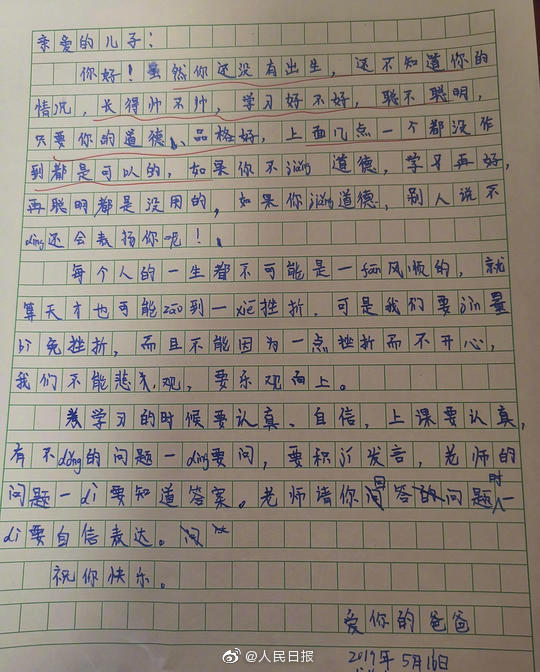 亲爱的儿子：
你好！虽然你还没有出生，还不知道你的
情况，长得帅不帅，学习好不好，聪不聪明，
只要你的道德、品格好，上面几点一个都没作
到都是可以的，如果你不jiǎng道德，学习再好，
再聪明都是没用的，如果你jiǎng道德，别人说不
dìng还会表扬你呢！
每个人的一生都不可能是一fān风顺的，就
算天才也可能zāo到一xiē挫折，可是我们要jìn量
bì免挫折，而且不能因为一点挫折而不开心，
我们不能悲观，要乐观向上。
学习的时候要认真、自信，上课要认真，
有不dǒng的问题一dìng要问，要积jí发言，老师的
问题一dì要知道答案。老师请你回答问题时一
dì要自信表达。
祝你快乐。
爱你的爸爸
2019年5月16日
@人民日报